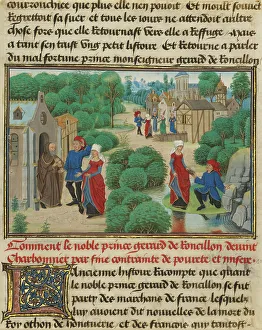 courouchice que plus elle nen povoit Et moult souvēt
regrettoit sa suer et tous les iours ne attendoit aultre
chose fors que elle retournast vers elle a reffuge a vais
a tant s'en taist ung petit listoire Et retourne a parler
du mal fortune prince monseigneur gerard de Ronciallon
Comment le noble prince gerard de Ronciallon devint
Charbonnier par fine contrainte de povrete et misere
Ancienne histoire racompte que quant
le noble prince gerard de Ronciallon se fut
party des marchans de france lesquelz
luy avoient dit nouvelles de la mort du
roy othon de honguerie et des francois qui tantost